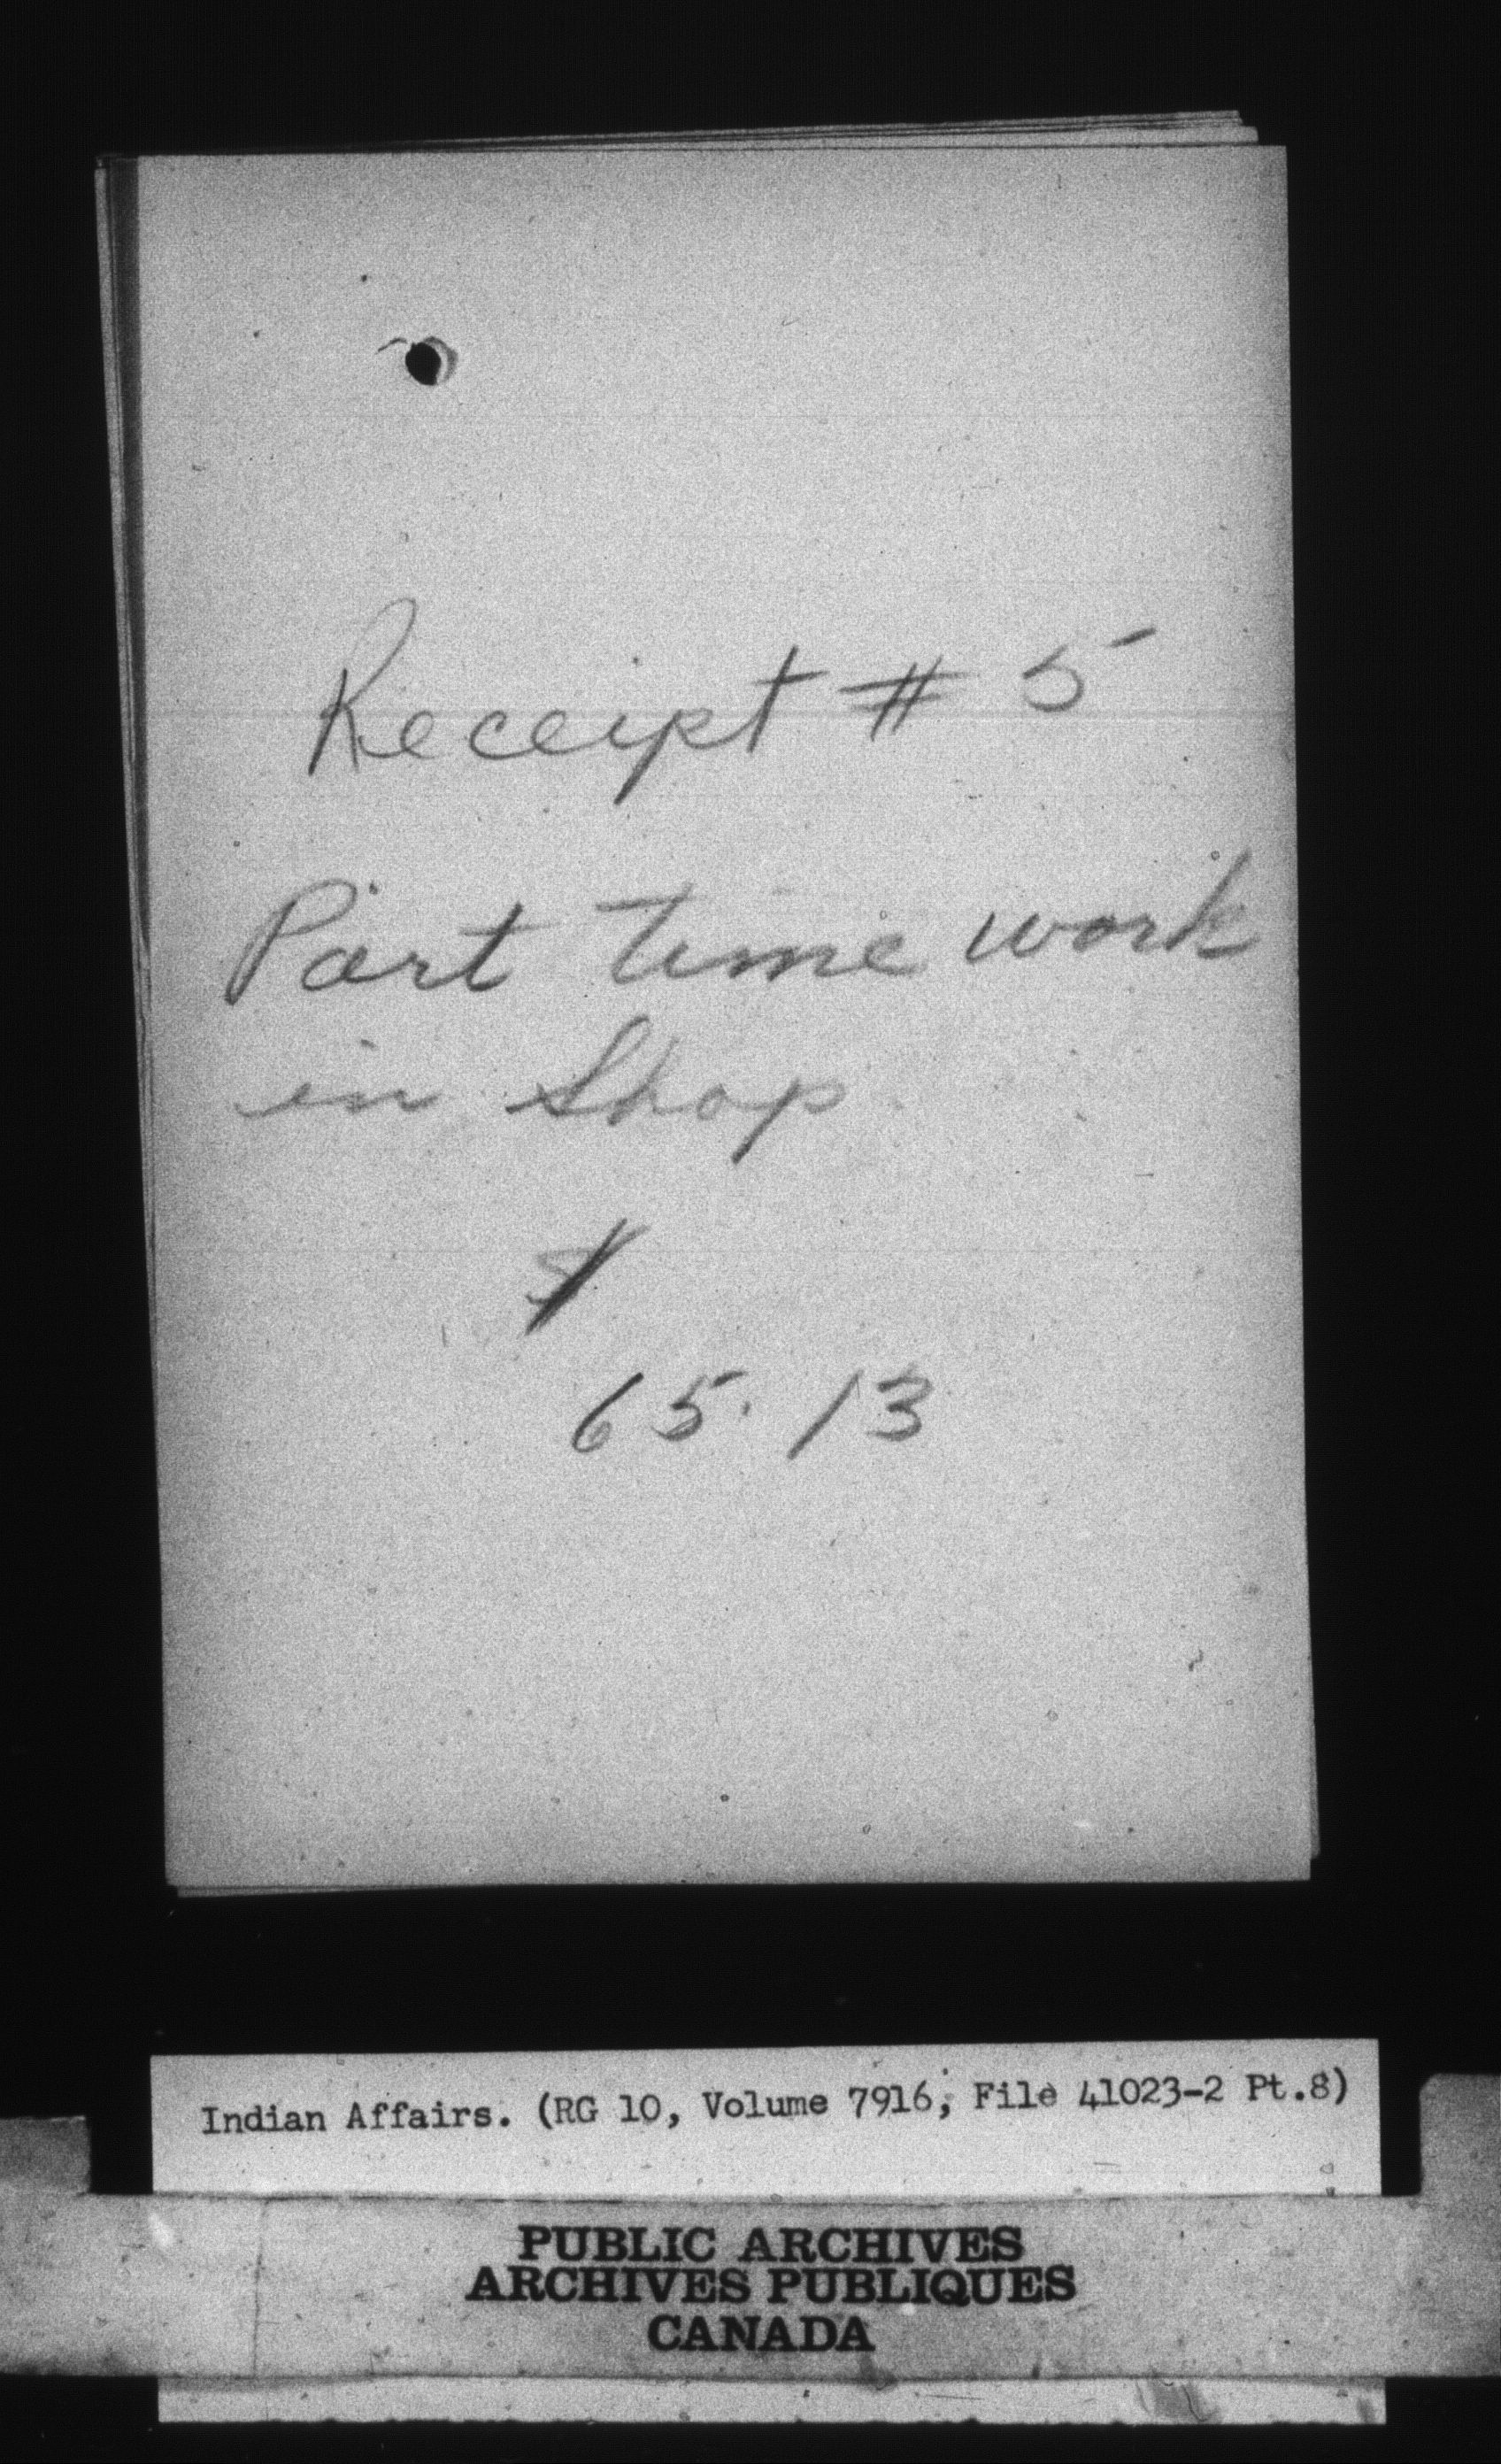 Receipt # 5
Part time work
in Shop
$
65.13
Indian Affairs. (RG 10, Volume 7916, File 41023-2 Pt.8)
PUBLIC ARCHIVES
ARCHIVES PUBLIQUES
CANADA